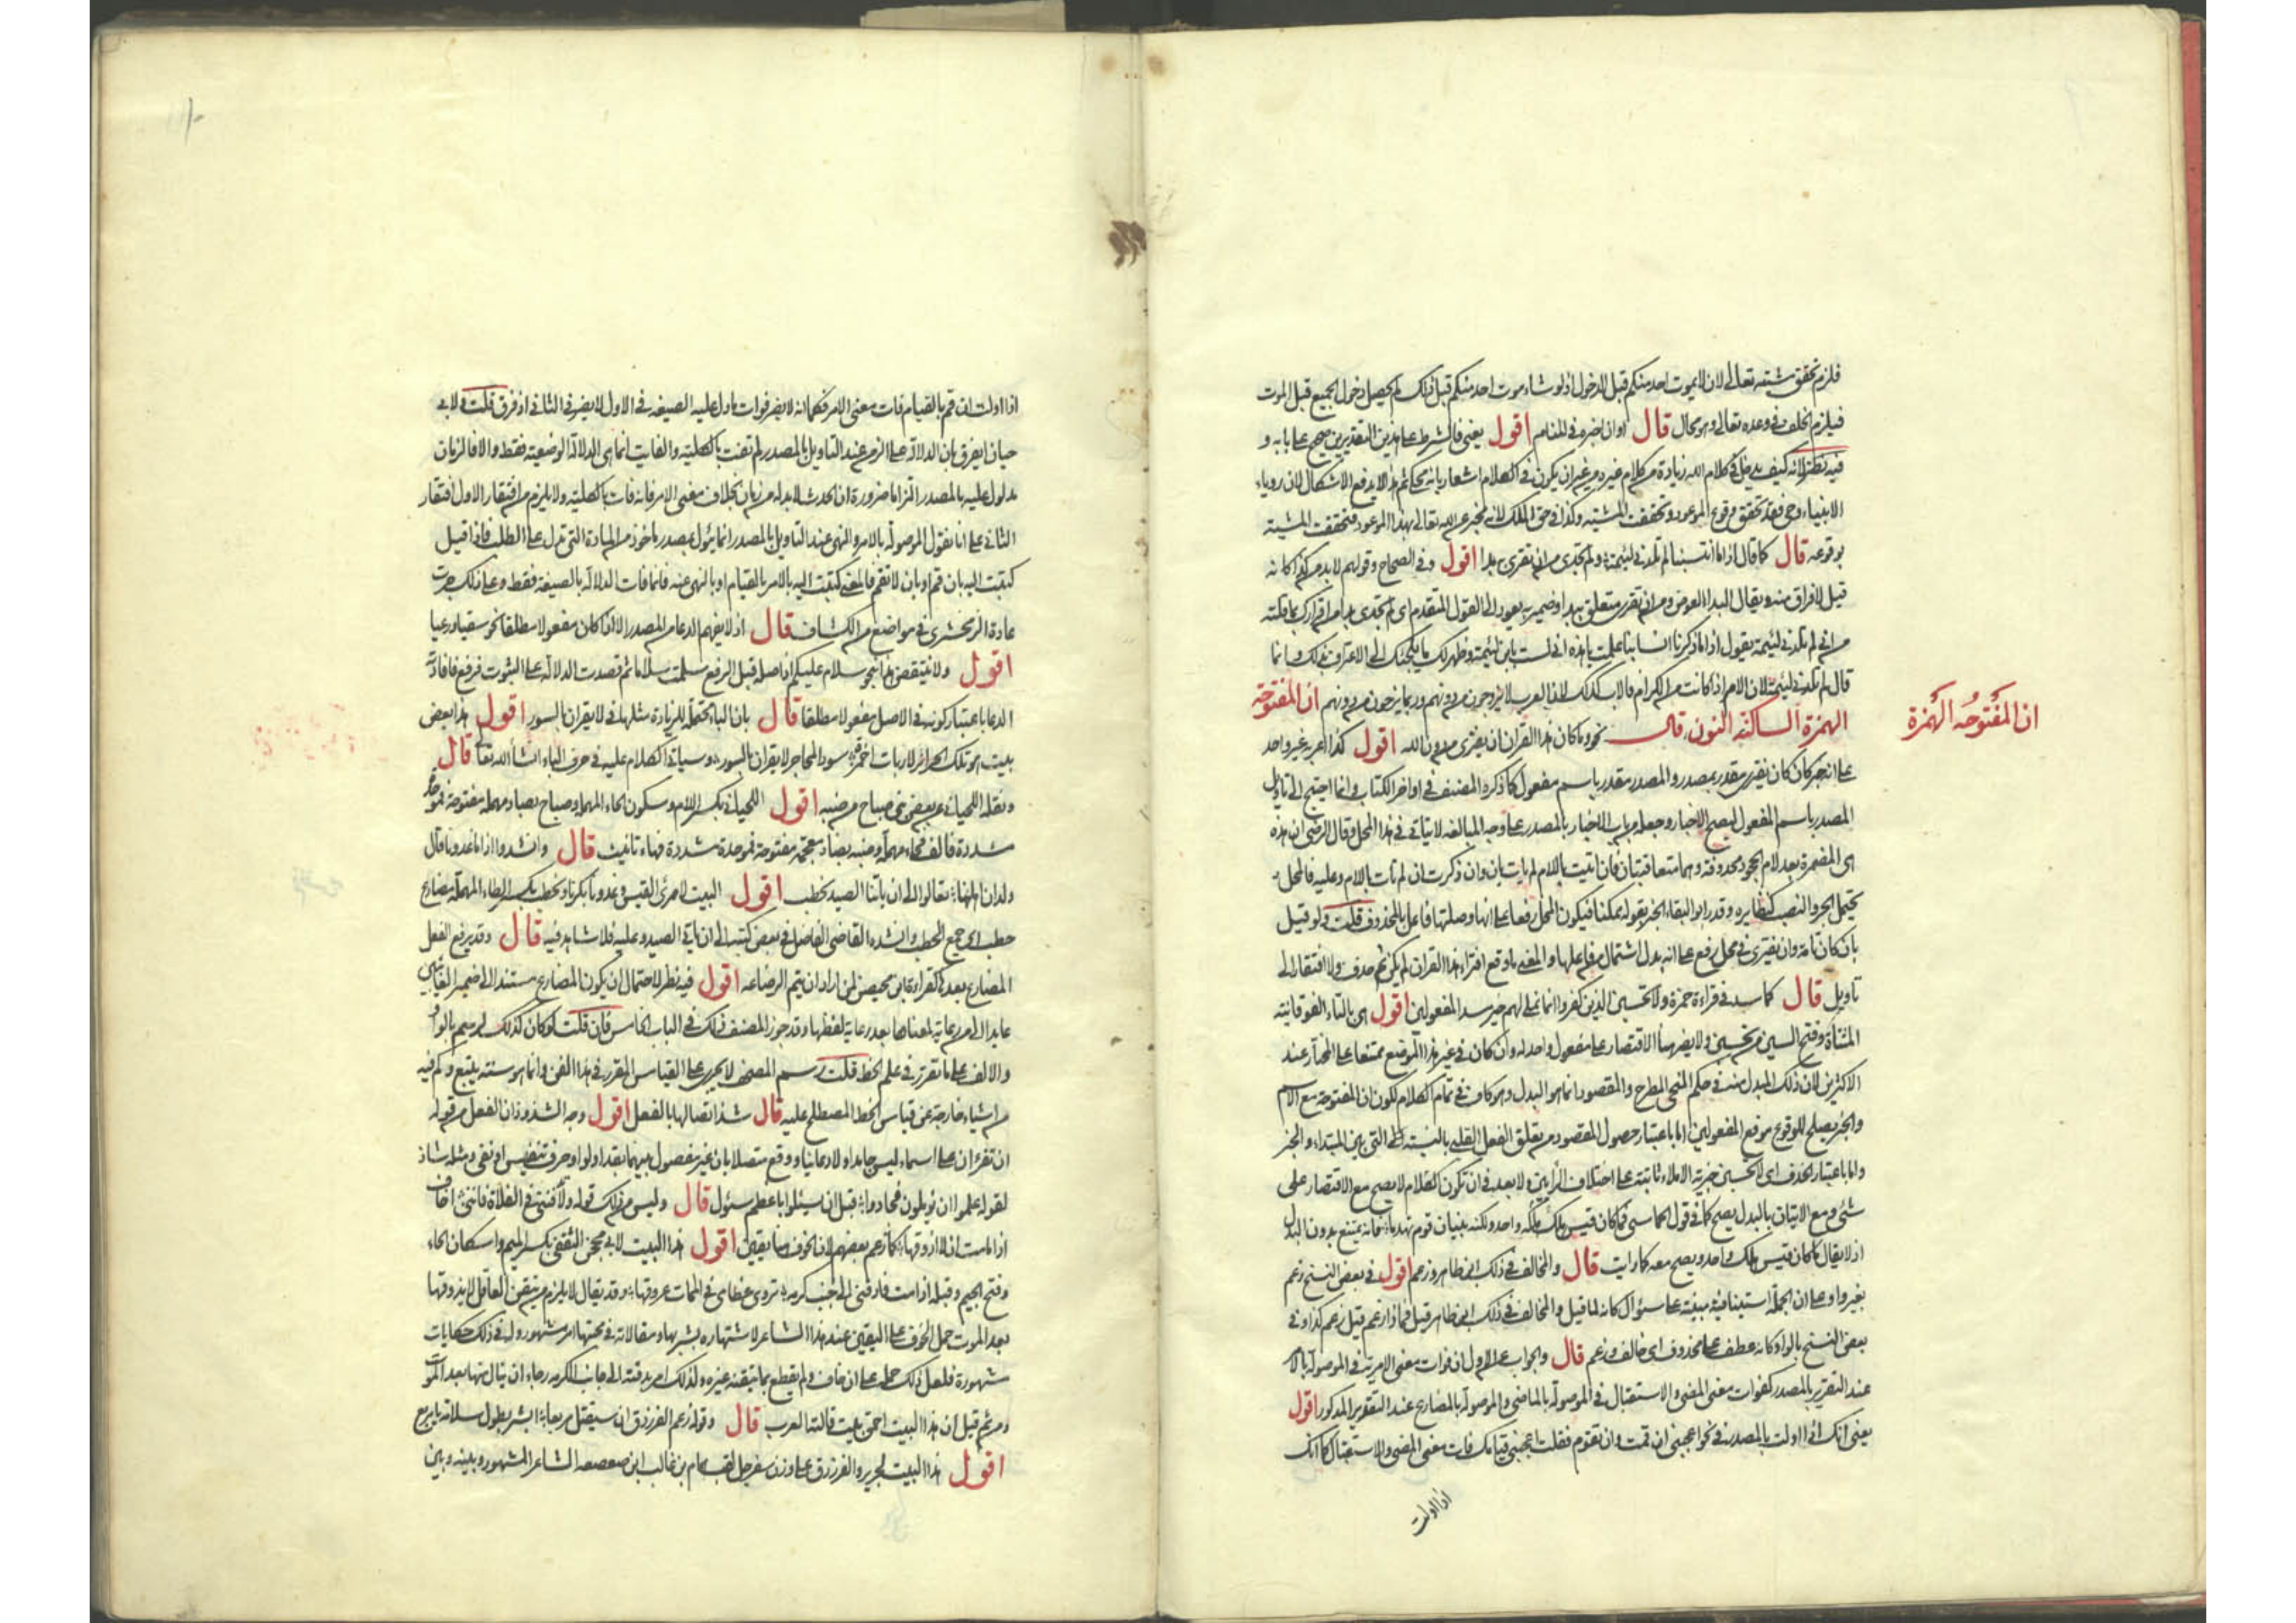 فلزم تحقق مشيته تعالى لان لا يموت احد منكم قبل الدخول اذ لو شاء موت احد منكم قبل ذلك لم يحصل دخول الجميع قبل الموت
فيلزم الخلف في وعده تعالى وهو محال قال او ان اخبره في المنام اقول يعني فالشرط على هذين التقديرين صحيح على بابه و
فيه نظر لانه كيف يدخل في كلام الله زيادة من كلام غيره من غير ان يكون في الكلام اشعار بانه محكي ثم هذا لا يدفع الاشكال لان روياء
الانبياء وحي فقد تحقق وقوع الموعود وتحققت المشيته وكذا في حق الملك لانه مخبر عن الله تعالى بهذا الموعود فتحققت المشيته
بوقوعه قال كما قال اذا ما انتسبنا لم تلدني لئيمة ولم تجدي من ان تقري به بدا اقول وفي الصحاح وقولهم لا بد من كذا كانه
قيل لا فراق منه ويقال البد العوض ومن ان تقري متعلق ببدا وضمير به يعود الى القول المتقدم اي لم تجدي بدا من اقرارك بما قلته
من اني لم تلدني لئيمة يقول اذا ما ذكرنا انسابنا علمت يا هذه اني لست بابن لئيمة وظهر لك ما يلجئك الى الاعتراف بذلك وانما
قال لم تلدني لئيمة لان الام اذا كانت من الكرام فالاب كذلك لان العرب لا يزوجون من دونهم وربما يتزوجون من دونهم ان المفتوحة
الهمزة الساكنة النون قال نحو وما كان هذا القرآن ان يفترى من دون الله اقول كذا اعربه غير واحد
ان المفتوحه الهمزة
على انه خبر كان كان يفترى مقدر بمصدر والمصدر مقدر باسم مفعول كما ذكره المصنف في اواخر الكتاب وانما احتيج الى تاويل
المصدر باسم المفعول ليصح الاخبار وجعله من باب الاخبار بالمصدر على وجه المبالغه لا يتاتى في هذا المحل وقال الرضي ان هذه
هي المضمرة بعد لام الجحود محذوفة وهما متعاقبتان فان اتيت باللام لم يات بان وان ذكرت ان لم تات باللام وعليه فالمحل
يحتمل الجر والنصب كنظايره وقدر ابو البقاء الخبر بقوله ممكنا فيكون المحل رفعا على انها وصلتها فاعل بالمحذوف قلت ولو قيل
بان كان تامة وان يفترى في محل رفع على انه بدل اشتمال من فاعلها والمعنى ما وقع افتراء هذا القرآن لم يكن ثم حذف ولا افتقار الى
تاويل قال كما سد في قراءة حمزة ولا تحسبن الذين كفروا انما نملي لهم خير سد المفعولين اقول هي بالتاء الفوقانية
المثناة وفتح السين من تحسبن ولا يضر هنا الاقتصار على مفعول واحد له وان كان في غير هذا الموضع ممتنعا على المختار عند
الاكثرين لان ذلك المبدل منه في حكم المنحى المطرح والمقصود انما هو البدل وهو كاف في تمام الكلام لكون ان المفتوحة مع الاسم
والخبر يصلح للوقوع موقع المفعولين اما باعتبار حصول المقصود من تعلق الفعل القلبي بالنسبة التي بين المبتداء والخبر
واما باعتبار الحذف اي لا تحسبن خيرية الاملاء ثابتة على اختلاف الرايين ولا بعد في ان يكون الكلام لا يصح مع الاقتصار على
شئ ومع الاتيان بالبدل يصح كما في قول الحماسي فما كان قيس هلكه هلك واحد ولكنه بنيان قوم تهدما فانه يمتنع بدون البدل
اذ لا يقال ما كان قيس هلك واحد ويصح معه كما رايت قال والمخالف في ذلك ابن طاهر وزعم اقول في بعض النسخ زعم
بغير واو على ان الجملة استينافيه مبنية على سؤال كانه لما قيل والمخالف في ذلك ابن طاهر قيل فماذا زعم قيل زعم كذا وفي
بعض النسخ بالواو كانه عطف على محذوف اي خالف وزعم قال والجواب عن الاول ان فوات معنى الامرية في الموصولة بالامر
عند التقرير بالمصدر كفوات معنى المضي والاستقبال في الموصولة بالماضي والموصولة بالمضارع عند التقرير المذكور اقول
يعني انك اذا اولت بالمصدر في نحو اعجبني ان قمت وان تقوم فقلت اعجبني قيامك فات معنى المضي والاستقبال كما انك
اذا اولت
اذا اولت ان قم بالقيام فات معنى الامر فكما انه لا يضر فوات ما دل عليه الصيغه في الاول لا يضر في الثاني اذ لا فرق قلت ولابي
حيان ان يفرق بان الدلالة على الزمن عند التاويل بالمصدر لم تفت بالكلية والفايت انما هي الدلالة الوضعية فقط والا فالزمان
مدلول عليه بالمصدر التزاما ضرورة ان الحدث لا بد له من زمان بخلاف معنى الامر فانه فات بالكلية ولا يلزم من افتقار الاول افتقار
الثاني على انا نقول الموصولة بالامر والنهي عند التاويل بالمصدر انما يئول بمصدر ماخوذ من المادة التي تدل على الطلب فاذا قيل
كتبت اليه بان قم او بان لا تقم فالمعنى كتبت اليه بالامر بالقيام او بالنهي عنه فانما فات الدلالة بالصيغة فقط وعلى ذلك جرت
عادة الزمخشري في مواضع من الكشاف قال اذ لا يفهم الدعاء من المصدر الا اذا كان مفعولا مطلقا نحو سقيا ورعيا
اقول ولا ينتقض هذا بنحو سلام عليكم اذ اصله قبل الرفع سلمت سلاما ثم قصدت الدلالة على الثبوت فرفع فافادته
الدعا باعتبار كونه في الاصل مفعولا مطلقا قال بان الباء محتملة للزيادة مثلها في لا يقران بالسور اقول هذا بعض
بيت هو تلك الحرائر لا ربات اخمرة سود المحاجر لا يقران بالسور وسياتي الكلام عليه في حرف الباء انشاء الله تعا قال
ونقله اللحياني عن بعض بني صباح من ضبه اقول اللحياني بكسر اللام وسكون الحاء المهملة وصباح بصاد مهملة مفتوحة فموحدة
مشددة فالف فحاء مهملة وضبه بضاد معجمة مفتوحة فموحدة مشددة فهاء تانيث قال وانشدوا اذا ما غدونا قال
ولدان اهلنا تعالوا الى ان ياتنا الصيد نحطب اقول البيت لامرئ القيس وغدونا بكرنا ونحطب بكسر الطاء المهملة مضارع
حطب اي جمع الحطب وانشده القاضي الفاضل في بعض كتبه الى ان ياتي الصيد وعليه فلا شاهد فيه قال وقد يرفع الفعل
المضارع بعدها كقراءة ابن محيصن لمن اراد ان يتم الرضاعه اقول فيه نظر لاحتمال ان يكون المضارع مسندا الى ضمير الغايبين
عايد الى من رعاية لمعناها بعد رعاية لفظها وقد جوز المصنف ذلك في الباب الخامس فان قلت لو كان كذلك لرسم بالواو
والالف على ما تقرر في علم الخط قلت رسم المصحف لا يجري على القياس المقرر في هذا الفن وانما هو سنة يتبع وكم فيه
من اشياء خارجة عن قياس الخط المصطلح عليه قال شذ اتصالها بالفعل اقول وجه الشذوذ ان الفعل من قوله
ان تقرءان على اسماء ليس جامدا ولا دعائيا ووقع متصلا بان غير مفصول بينهما بقد او لو او حرف تنفيس او نفي ومثله شاذ
لقوله علموا ان يؤملون فجادوا قبل ان يسئلوا باعظم سئول قال وليس من ذلك قوله ولا تدفنني في الفلاة فانني اخاف
اذا ما مت ان لا اذوقها كما زعم بعضهم لان الخوف هنا يقين اقول هذا البيت لابي محجن الثقفي بكسر الميم واسكان الحاء
وفتح الجيم وقبله اذا مت فادفني الى جنب كرمة تروي عظامي في الممات عروقها وقد يقال لا يلزم من تيقن العاقل لا يذوقها
بعد الموت حمل الخوف على اليقين عند هذا الشاعر لاشتهاره بشربها ومقالاته في محبتها امر مشهور وله في ذلك حكايات
مشهورة فلعل ذلك حمله على ان خاف ولم يقطع بما تيقنه غيره ولذلك امر بدفنه الى جانب الكرمه رجاء ان ينال منها بعد الموت
ومن ثم قيل ان هذا البيت احمق بيت قالته العرب قال وقوله زعم الفرزدق ان سيقتل مربعا ابشر بطول سلامة يا مربع
اقول هذا البيت لجرير والفرزدق على وزن سفرجل لقب همام بن غالب ابن صعصعه الشاعر المشهور وبينه وبين